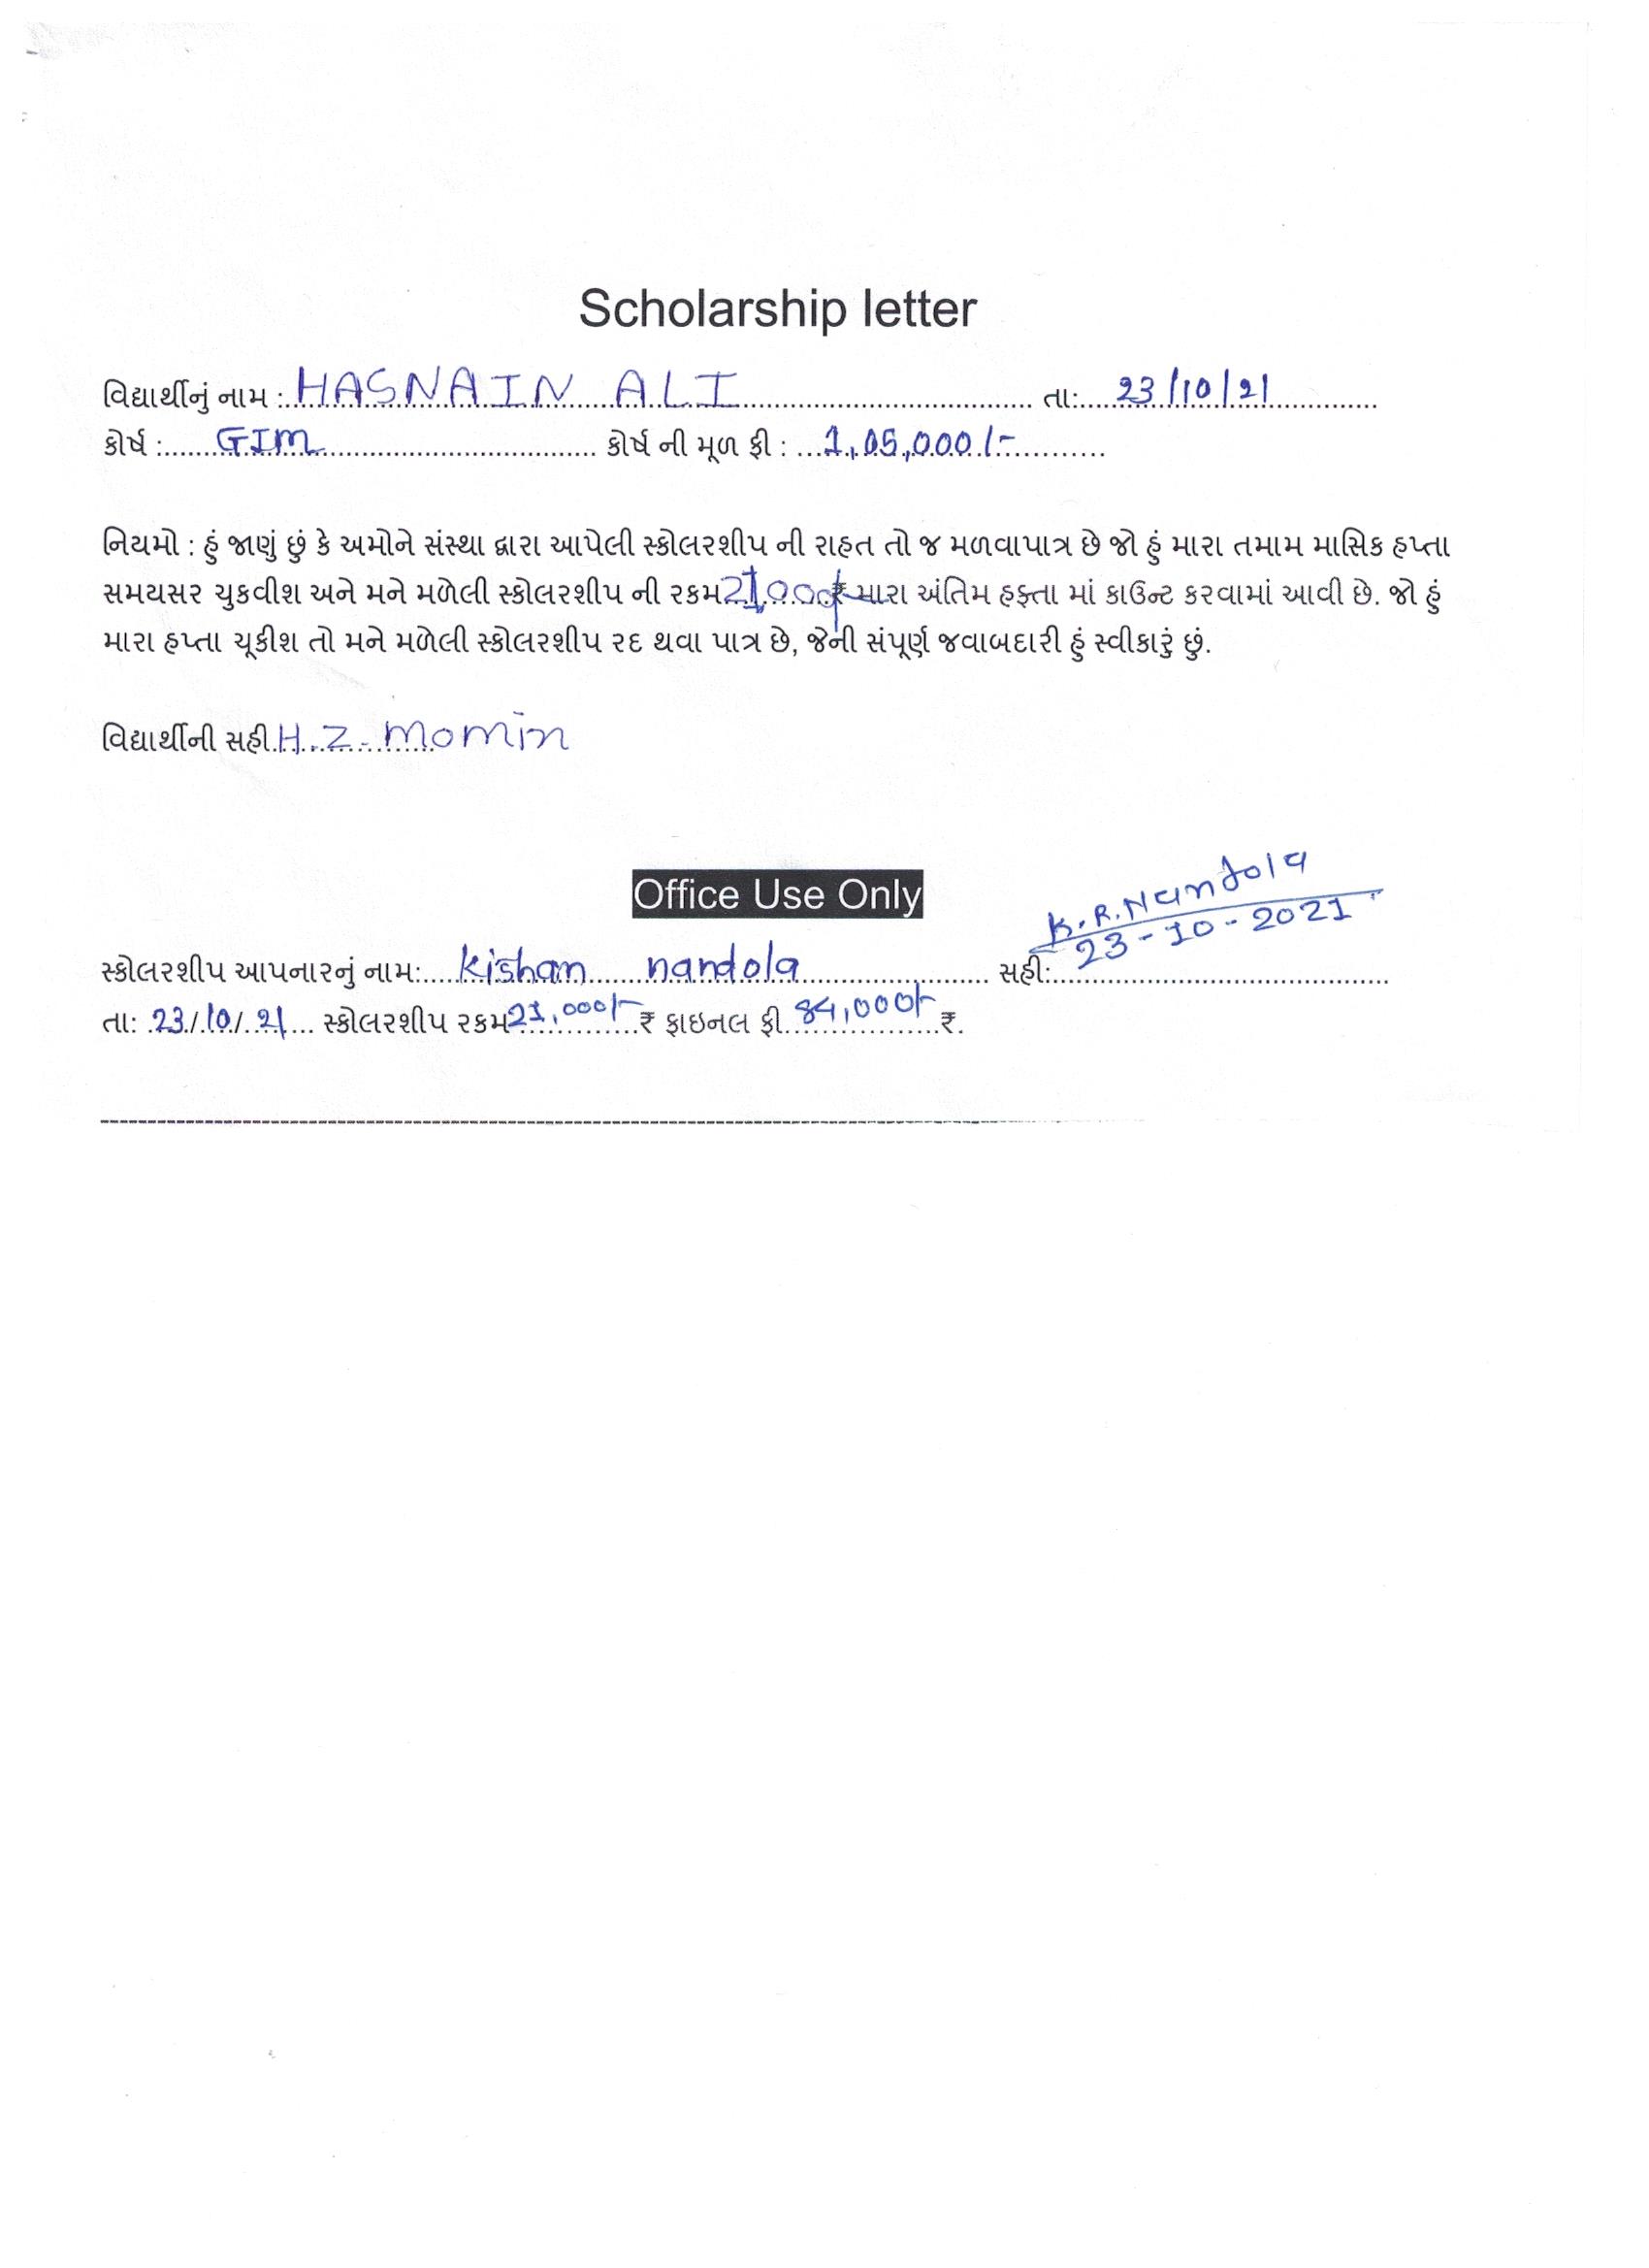 Scholarship letter
વિદ્યાર્થીનું નામ : HASNAIN ALI તા: 23/10/21
કોર્ષ : GIM કોર્ષ ની મૂળ ફી : 1,05,000/-
નિયમો : હું જાણું છું કે અમોને સંસ્થા દ્વારા આપેલી સ્કોલરશીપ ની રાહત તો જ મળવાપાત્ર છે જો હું મારા તમામ માસિક હપ્તા
સમયસર ચુકવીશ અને મને મળેલી સ્કોલરશીપ ની રકમ 21,000/- ₹ મારા અંતિમ હફ્તા માં કાઉન્ટ કરવામાં આવી છે. જો હું
મારા હપ્તા ચૂકીશ તો મને મળેલી સ્કોલરશીપ રદ થવા પાત્ર છે, જેની સંપૂર્ણ જવાબદારી હું સ્વીકારું છું.
વિદ્યાર્થીની સહી H.Z. Momin
Office Use Only
K.R.Nandola
23-10-2021
સ્કોલરશીપ આપનારનું નામ: Kishan nandola સહી:
તા: 23/10/21 સ્કોલરશીપ રકમ 21,000/- ₹ ફાઇનલ ફી 84,000/- ₹.